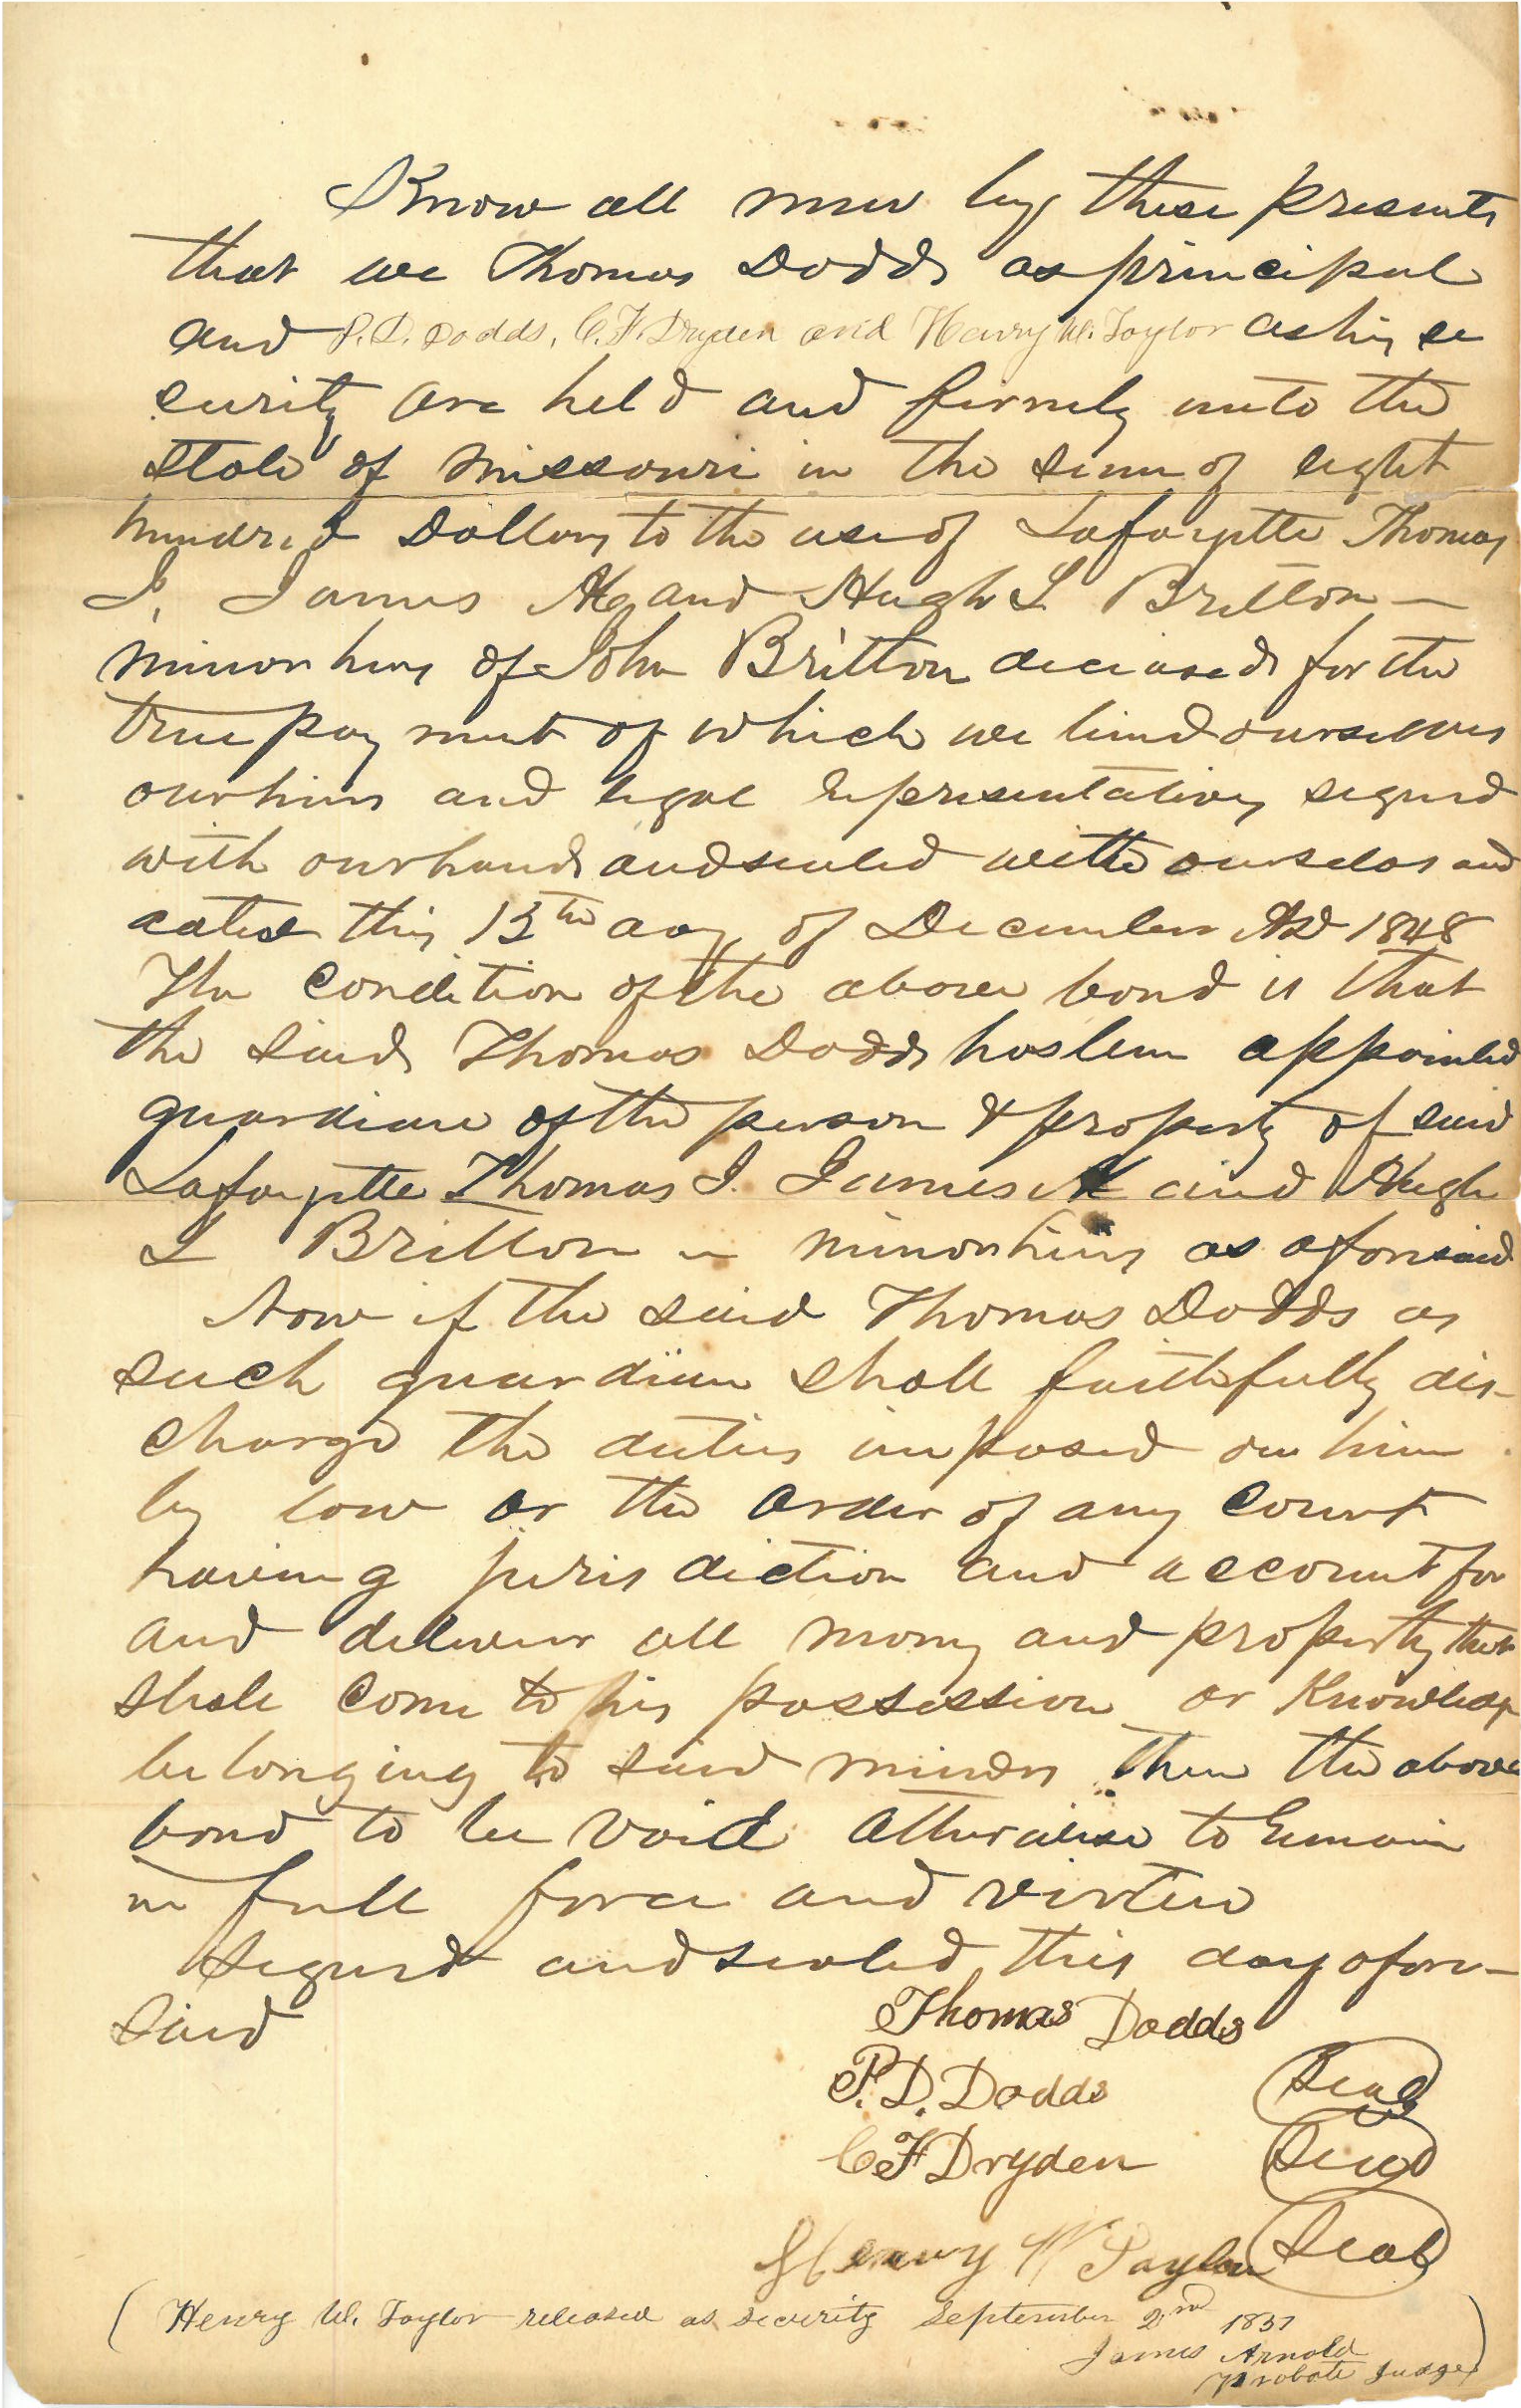 Know all men by these presents
that we Thomas Dodds as principal
and P. D. Dodds, C. F. Dryden and Henry W. Taylor as his se
curity are held and firmly unto the
State of Missouri in the sum of eight
hundred Dollars to the use of Lafayette Thomas
J. James M and Hugh L Britton —
minor heirs of John Britton deceased for the
true payment of which we bind ourselves
our heirs and legal representatives signed
with our hands and sealed with our selas and
dated this 13th day of December AD 1848
The condition of the above bond is that
the said Thomas Dodds has been appointed
guardian of the person & property of said
Lafayette Thomas J. James M and Hugh
L Britton — minor heirs as aforesaid
Now if the said Thomas Dodds as
such guardian shall faithfully dis-
charge the duties imposed on him
by law or the order of any court
having jurisdiction and account for
and deliver all money and property that
shall come to his possession or knowledge
belonging to said minors then the above
bond to be void otherwise to remain
in full force and virtue
Signed and sealed this day afore-
said
Thomas Dodds
P. D. Dodds Seal
C F Dryden Seal
Henry W Taylor Seal
(Henry W. Taylor released as security September 2nd 1851
James Arnold
Probate Judge)